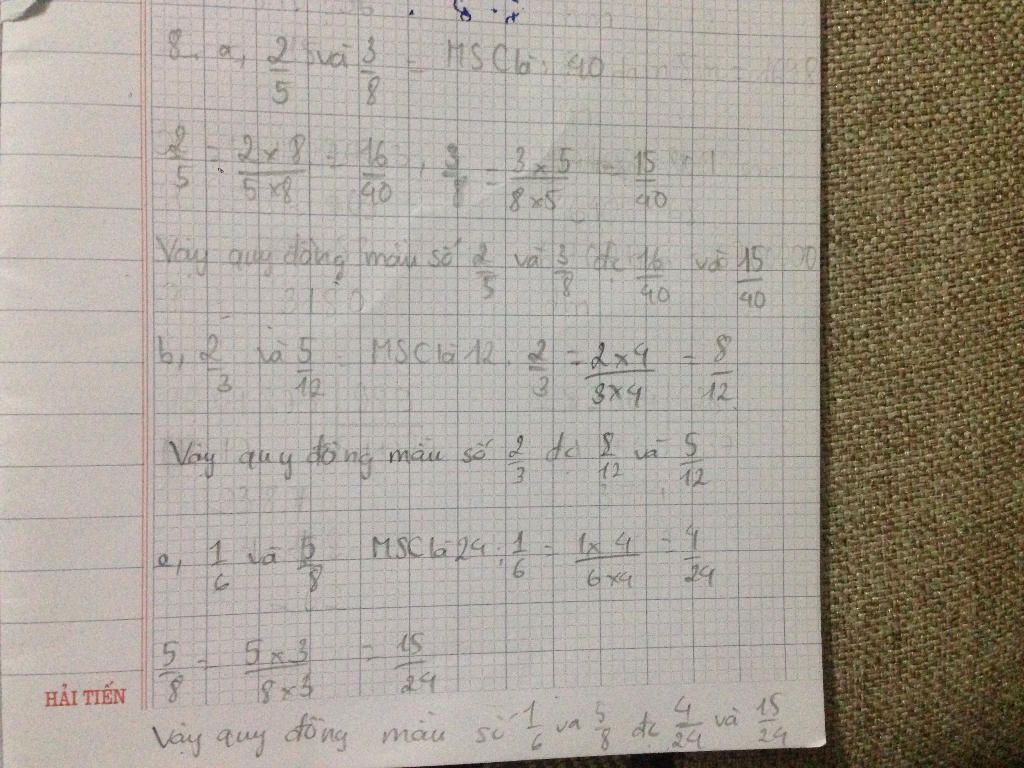 8. a, 2/5 và 3/8 = MSC là: 40
2/5 = 2 x 8 / 5 x 8 = 16/40, 3/8 = 3 x 5 / 8 x 5 = 15/40
Vậy quy đồng mẫu số 2/5 và 3/8 đc 16/40 và 15/40
b, 2/3 và 5/12 MSC là 12. 2/3 = 2 x 4 / 3 x 4 = 8/12
Vậy quy đồng mẫu số 2/3 đc 8/12 và 5/12
c, 1/6 và 5/8 MSC là 24: 1/6 = 1 x 4 / 6 x 4 = 4/24
5/8 = 5 x 3 / 8 x 3 = 15/24
HẢI TIẾN
Vậy quy đồng mẫu số 1/6 va 5/8 đc 4/24 và 15/24